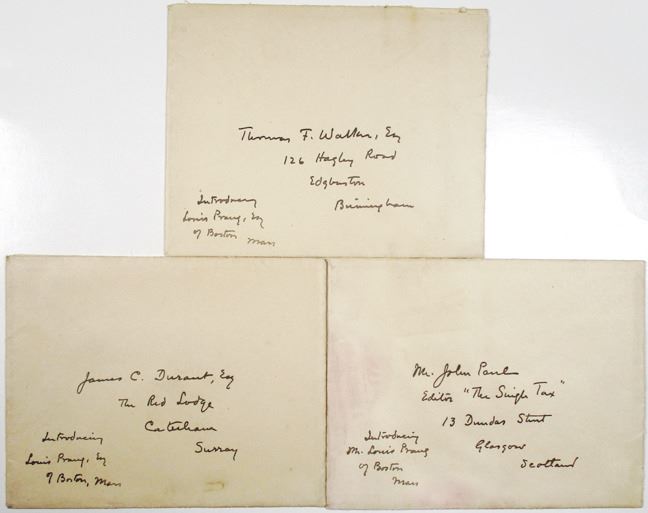 Thomas F. Walker, Esq
126 Hagley Road
Edgbaston
Birmingham
Introducing
Louis Prang, Esq
of Boston, Mass
James C. Durant, Esq
The Red Lodge
Caterham
Surrey
Introducing
Louis Prang, Esq
of Boston, Mass
Mr. John Paul
Editor "The Single Tax"
13 Dundas Street
Glasgow
Scotland
Introducing
Mr. Louis Prang
of Boston
Mass